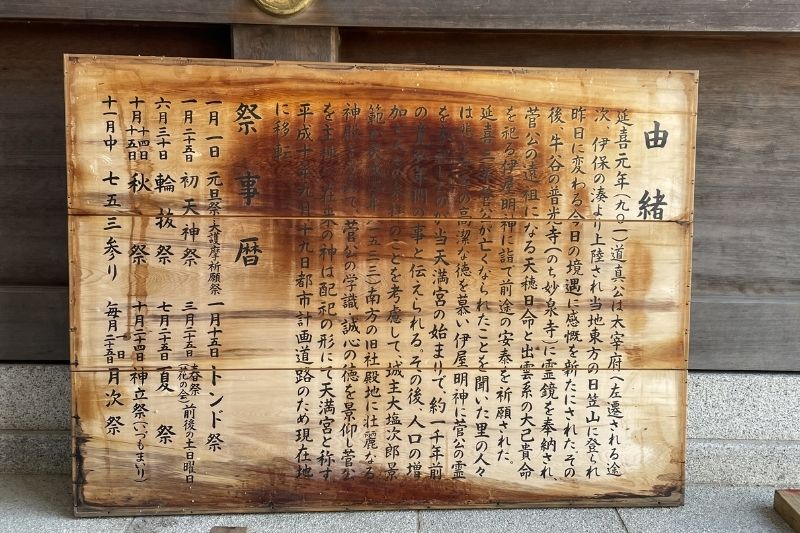 由緒
延喜元年(九〇一)道真公は太宰府へ左遷される途
次、伊保の湊より上陸され当地東方の日笠山に登られ
昨日に変わる今日の境遇に感慨を新たにされたその
後、牛谷の普光寺(のち妙泉寺)に霊鏡を奉納され、
菅公の遠祖になる天穂日命と出雲系の大己貴命
を祀る伊屋明神に詣で前途の安泰を祈願された。
延喜三年菅公が亡くなられたことを聞いた里の人々
は な徳を慕い伊屋明神に菅公の霊
を が当天満宮の始まりで、約一千年前
の 年間の事と伝えられる。その後、人口の増
加 のことを考慮して、城主大塩次郎景
範 年(一五二三)南方の旧社殿地に壮麗なる
神殿 て菅公の学識、誠心の徳を景仰し菅公
を主 の神は配祀の形にて天満宮と称す
平成十 年九月十九日都市計画道路のため現在地
に移転
祭事暦
一月一日 元旦祭・大護摩祈願祭 一月十五日 トンド祭
一月二十五日 初天神祭 三月二十五日 春祭(花の会)前後の土日曜日
六月三十日 輪抜祭 七月二十五日 夏祭
十月十四日十五日 秋祭 十月二十四日 神立祭(いづもまいり)
十一月中 七五三参り 毎月一日二十五日 月次祭